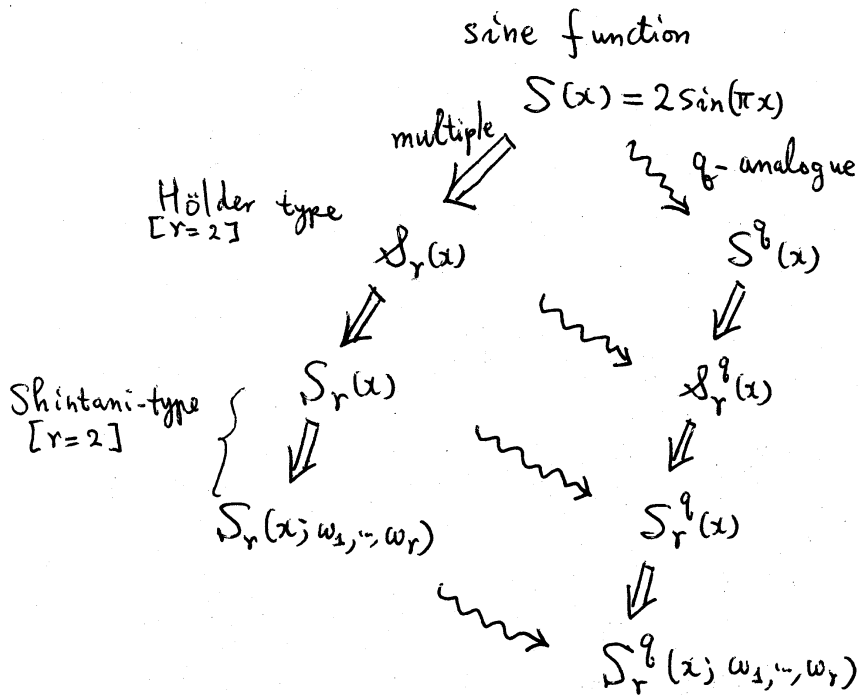 sine function
S(x) = 2 sin(πx)
multiple
q-analogue
Hölder type
[r=2]
𝒮_r(x)
S^q(x)
Shintani-type
[r=2]
S_r(x)
𝒮_r^q(x)
S_r(x; ω_1, ..., ω_r)
S_r^q(x)
S_r^q(x; ω_1, ..., ω_r)